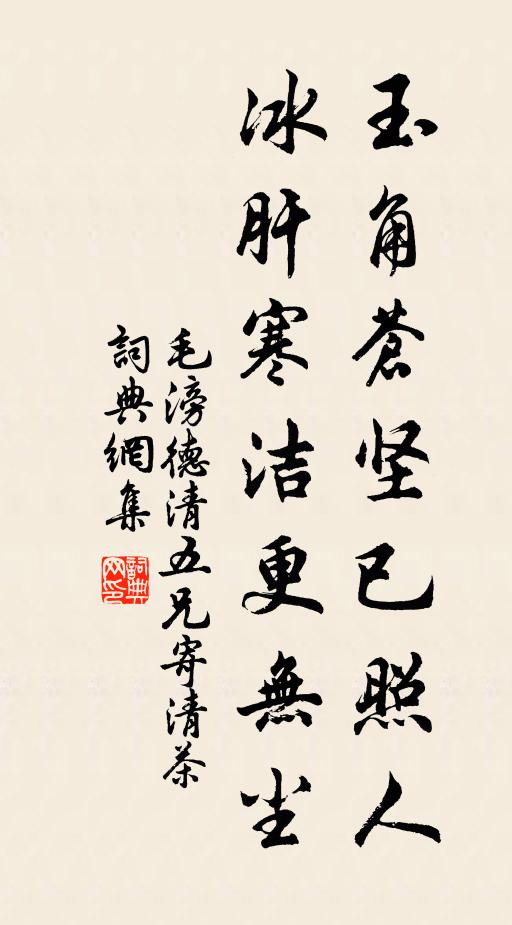 玉角苍坚已照人
冰肝寒洁更無尘
毛滂德清五兄寄清茶
詞典網集
詞典网印